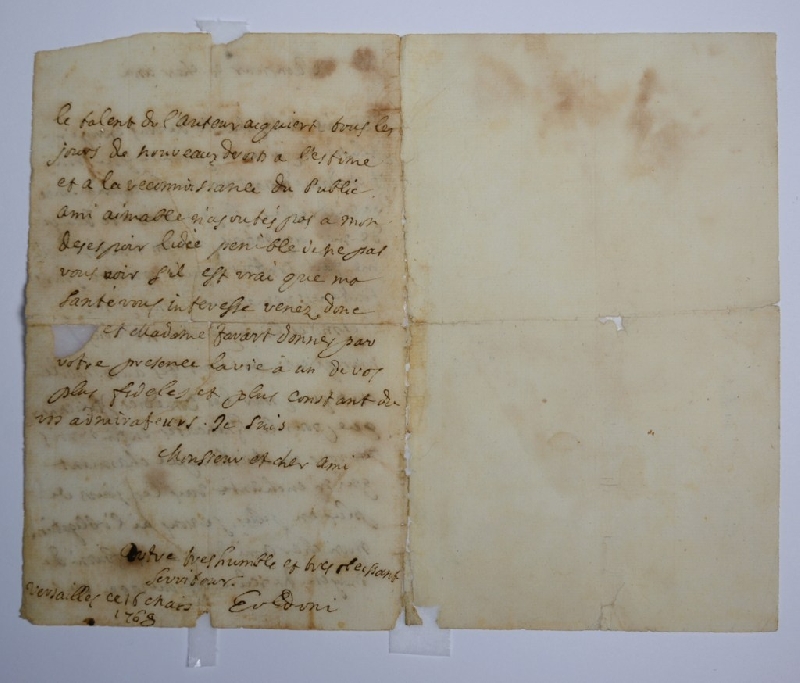 le talent de l'Auteur acquiert tous les
jours de nouveaux droits a l'estime
et a la reconnoissance du Public.
ami aimable n'ajoutés pas a mon
desespoir lidée penible de ne pas
vous voir s'il est vrai que ma
santé vous interesse venéz donc
et Madame favart donnes par
votre presence la vie à un de vos
plus fideles et plus constant de
admirateurs. Je suis
Monsieur et cher ami
Votre tres humble et tres obeissant
serviteur.
Versailles ce 16
1768